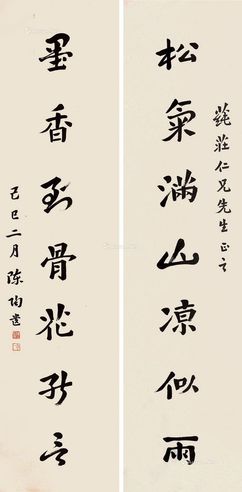 松氣滿山凉似雨
蒓莊仁兄先生正之
墨香到骨花言
己巳二月陳陶遺